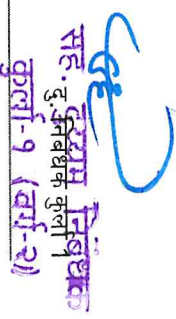 सह. दुय्यम निबंधक
दु.निबंधक कुर्ला 1
कुर्ला-१ (वर्ग-२)